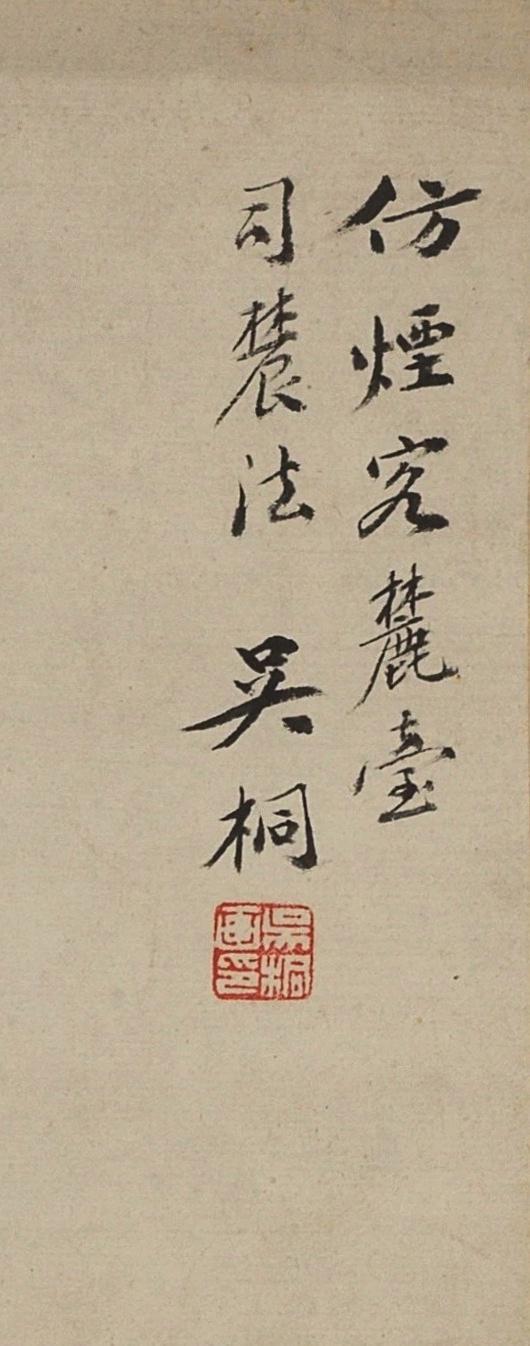 仿煙客麓臺
司農法 吳桐
吳桐
画印